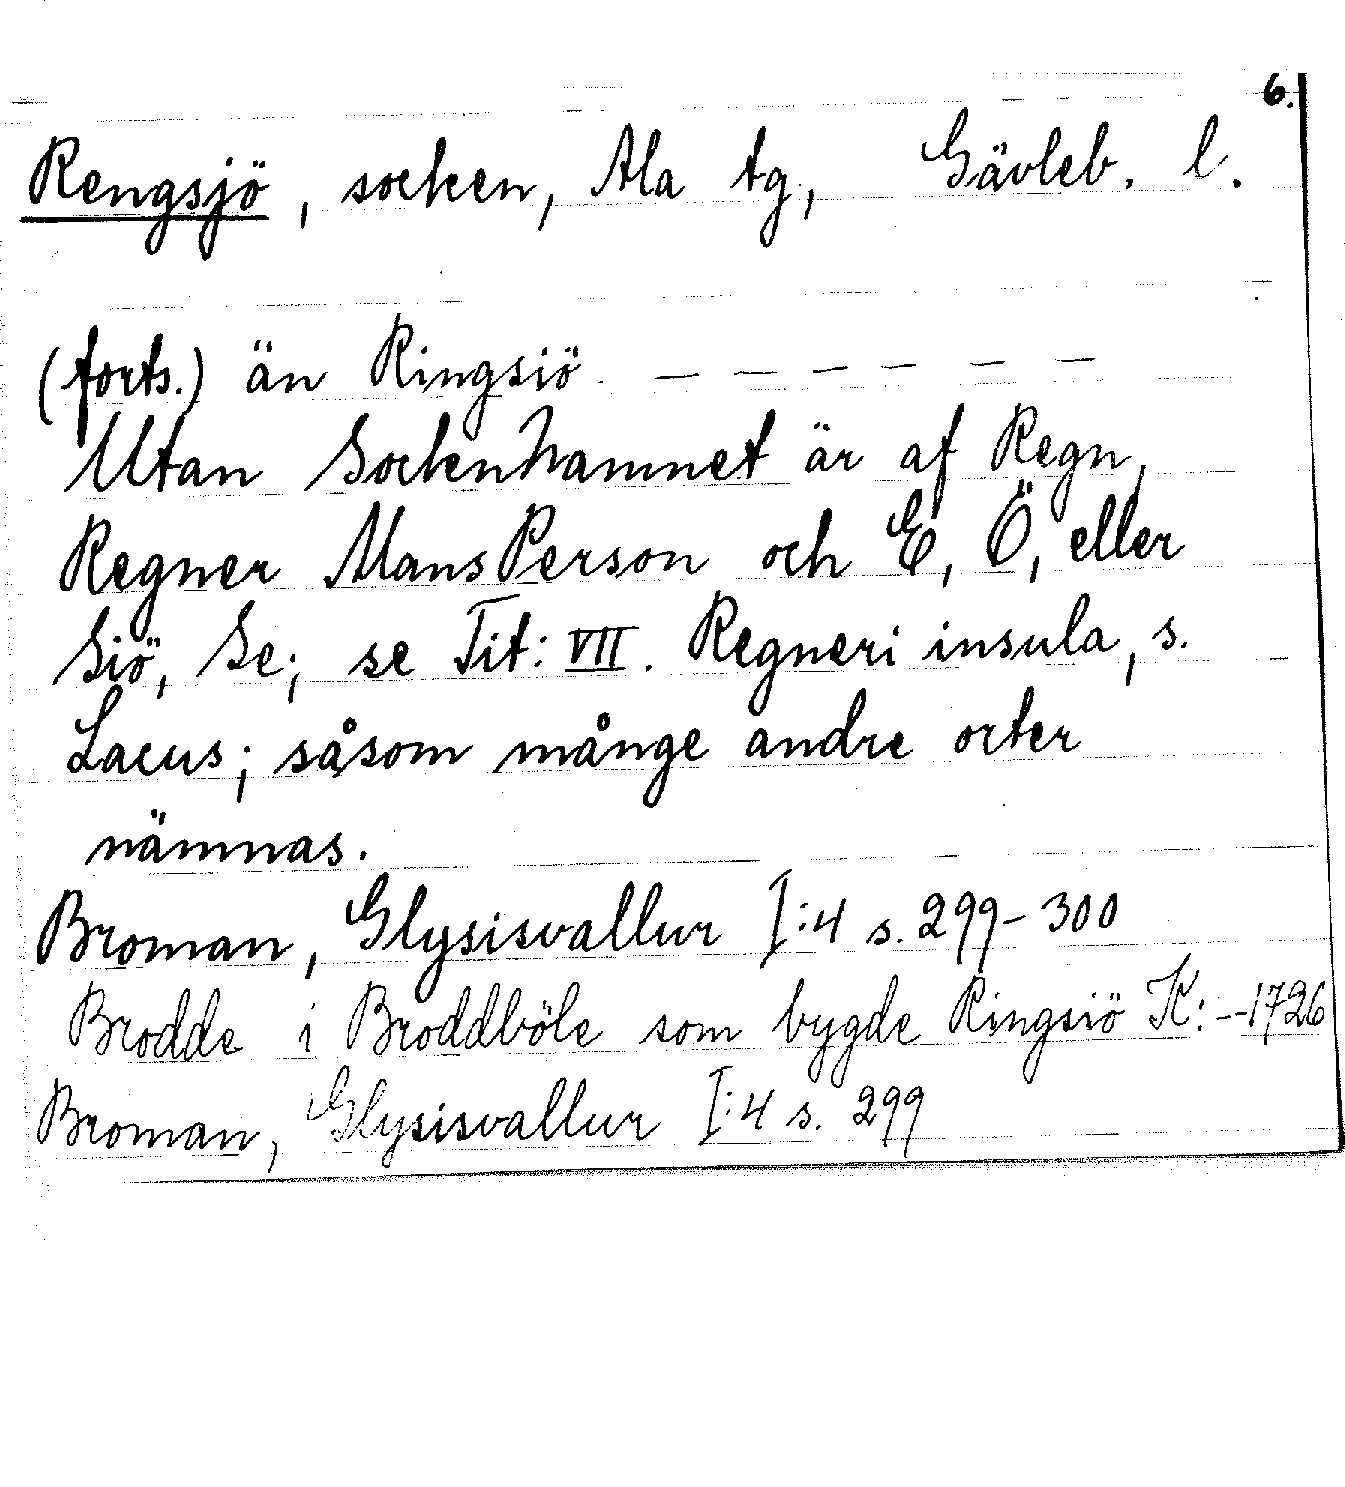 6.
Rengsjö, socken, Ala tg, Gävleb. l.
(forts.) än Ringsiö. — — — — — —
Utan SockenNamnet är af Regn,
Regner MansPerson och E, Ö, eller
Siö, Se; se Tit: VII. Regneri insula, s.
Lacus; såsom månge andre orter
nämnas.
Broman, Glysisvallur I:4 s. 299-300
Brodde i Broddböle som bygde Ringsiö K: --1726
Broman, Glysisvallur I:4 s. 299